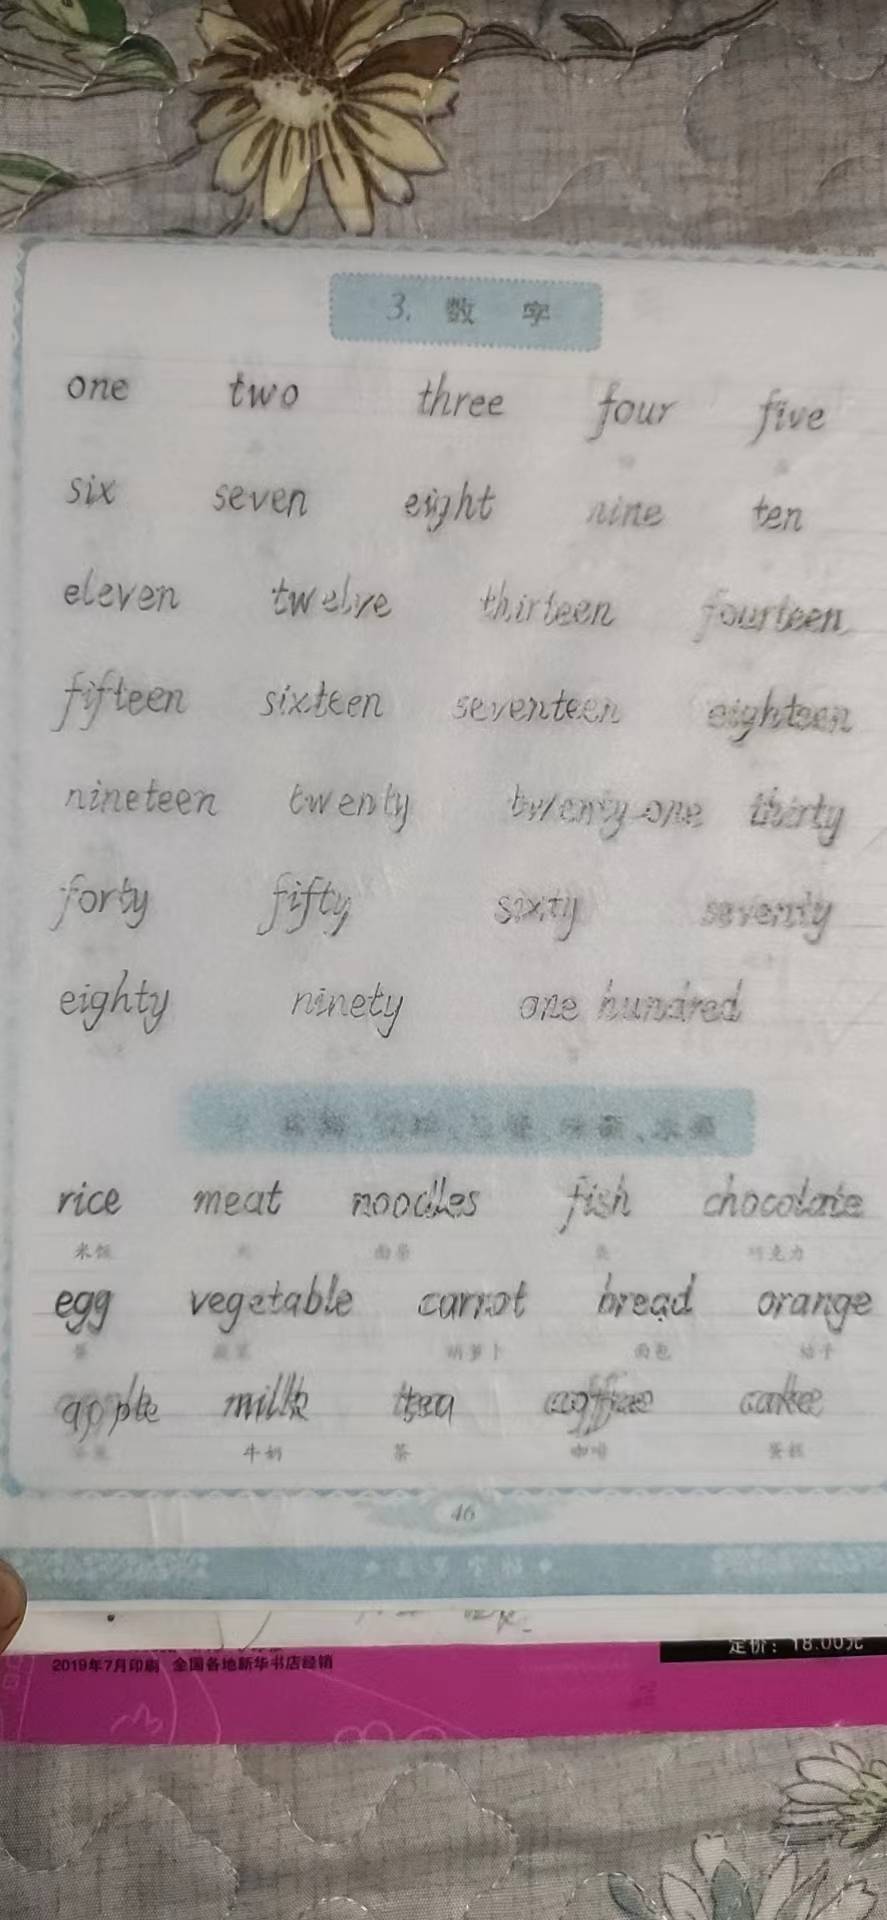 3. 数 字
one two three four five
six seven eight nine ten
eleven twelve thirteen fourteen
fifteen sixteen seventeen eighteen
nineteen twenty twenty-one thirty
forty fifty sixty seventy
eighty ninety one hundred
rice meat noodles fish chocolate
米饭 面条 鱼 巧克力
egg vegetable carrot bread orange
蛋 蔬菜 胡萝卜 面包 桔子
apple milk tea coffee cake
苹果 牛奶 茶 咖啡 蛋糕
46
2019年7月印刷 全国各地新华书店经销
定价：18.00元